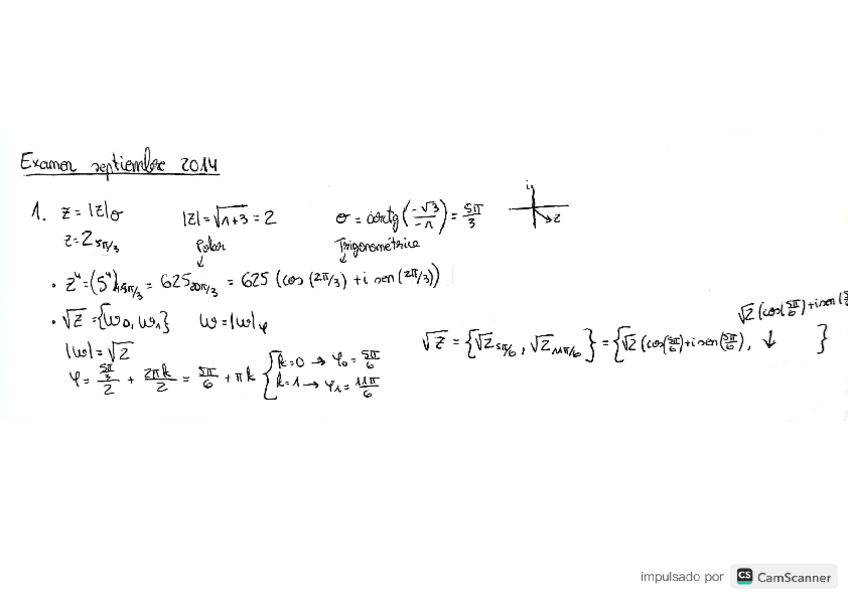 Examen septiembre 2014
1. z = |z|σ |z| = √1+3 = 2 σ = arctg(-√3/-1) = 5π/3
z = 2 5π/3 Polar Trigonométrica
i
z
· z⁴ = (5⁴)4·5π/3 = 625 20π/3 = 625 (cos (2π/3) + i sen (2π/3))
· √z = {w₀, w₁} w = |w|φ
|w| = √2
φ = 5π/3/2 + 2πk/2 = 5π/6 + πk { k=0 → φ₀ = 5π/6
k=1 → φ₁ = 11π/6
√z = {√2 5π/6, √2 11π/6} = {√2 (cos(5π/6) + i sen(5π/6), ↓ }
√2 (cos(5π/6) + i sen(
impulsado por CS CamScanner